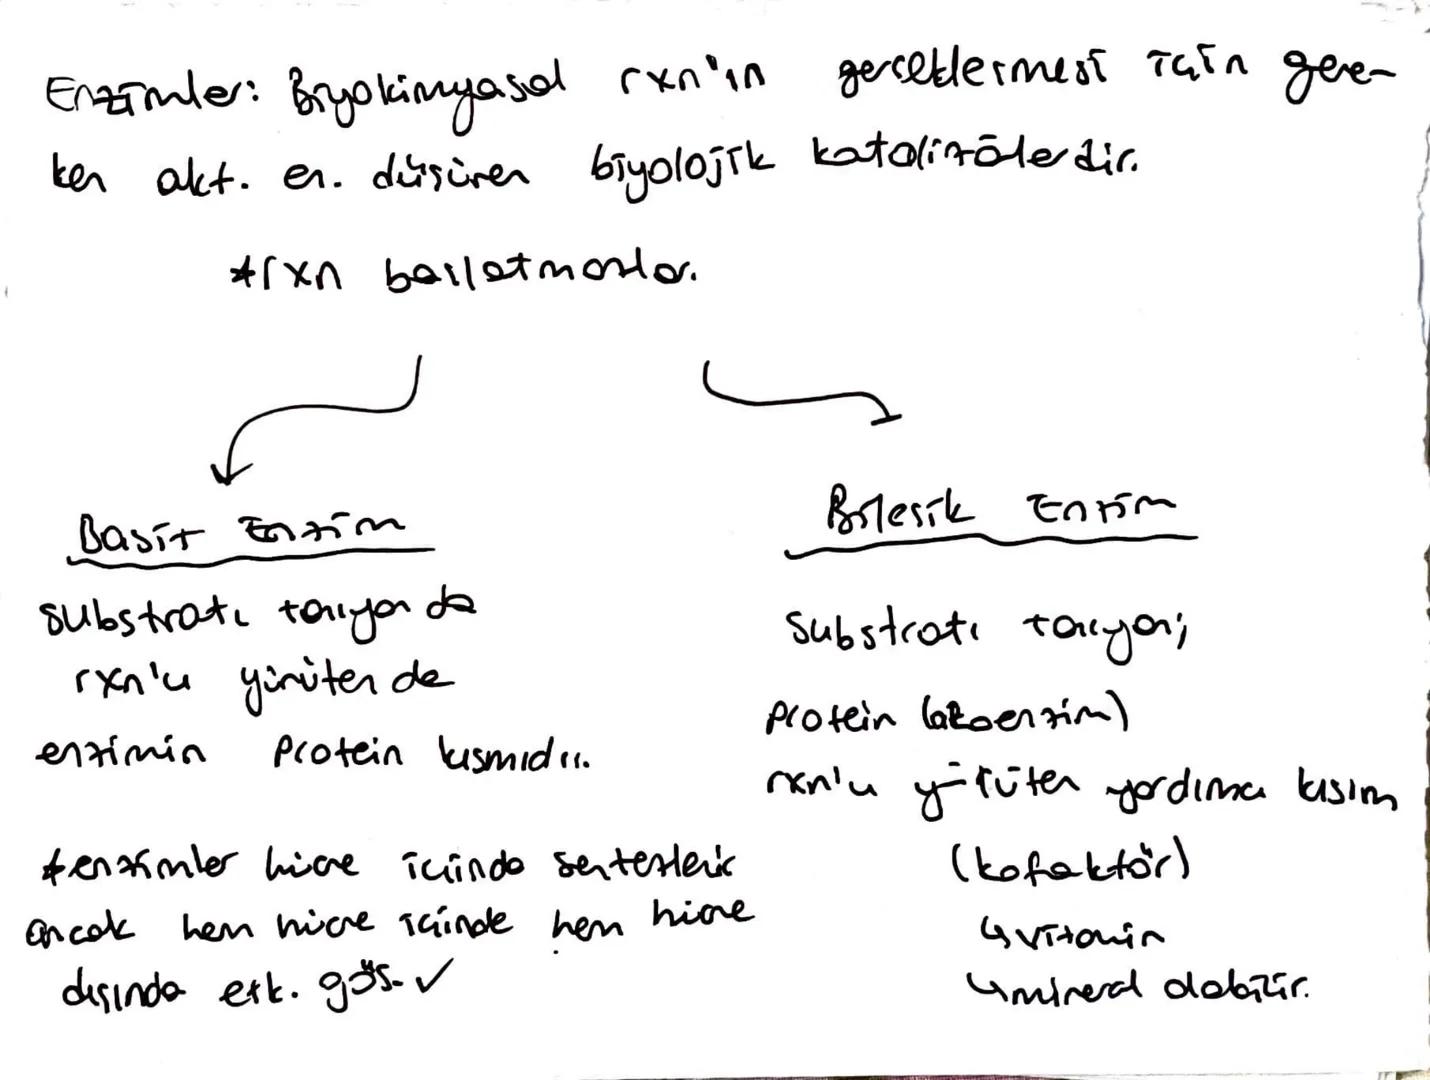 Enzimler: Biyokimyasal rxn'ın gerçekleşmesi için gere-
ken akt. en. düşüren biyolojik katalizörlerdir.
*rxn başlatmazlar.
Basit Enzim
substratı tanıyan da
rxn'u yürüten de
enzimin protein kısmıdır.
*enzimler hücre içinde sentezlenir
ancak hem hücre içinde hem hücre
dışında etk. gös. ✓
Bileşik Enzim
substratı tanıyan;
protein (apoenzim)
rxn'u yürüten yardımcı kısım
(kofaktör)
↳vitamin
↳mineral olabilir.